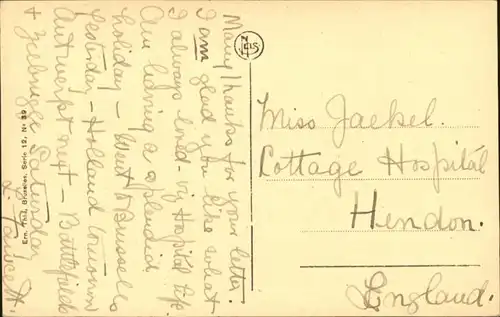 Many thanks for your letter.
I am glad you like what
I always loved - viz Hospital life.
Am having a splendid
holiday - went to Brussels
Yesterday - Holland tomorrow
Antwerp next - Battlefields
+ Zeebrugge Saturday
L. Fawcett.
Miss Jaekel.
Cottage Hospital
Hendon.
England.
NELS
Ern. Thill, Bruxelles. Serie 12, No 89